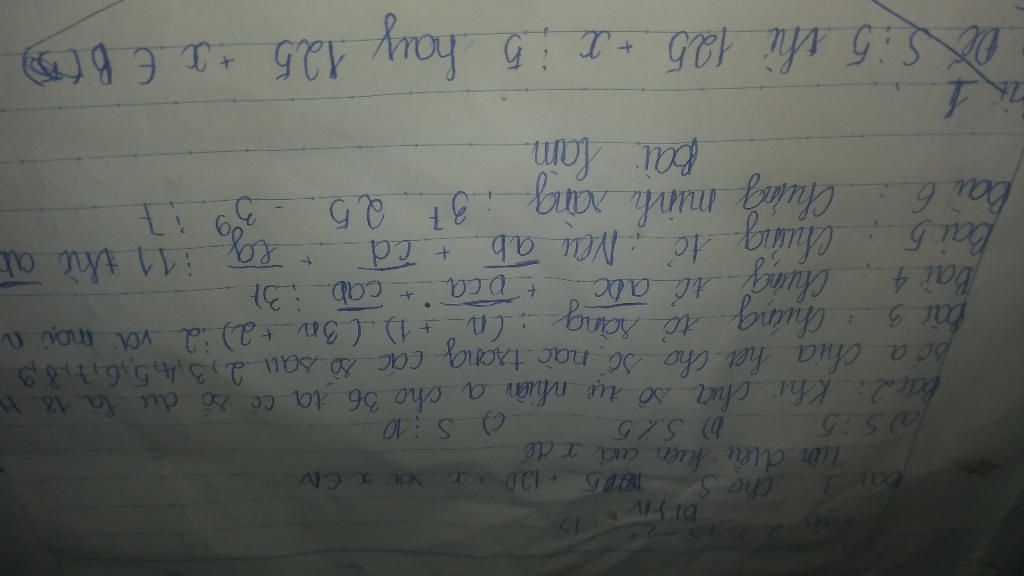 BTVN
Bài 1 : Cho S = 5 + 120 + x với x ∈ N
Tìm điều kiện của x để
a) S ⋮ 5 b) S ⋮̸ 5 c) S ⋮ 10
Bài 2 : Khi chia số tự nhiên a cho 36 ta có số dư là 18. H
số a chia hết cho số nào trong các số sau 2, 3, 4, 5, 6, 7, 8, 9
Bài 3 : Chứng tỏ rằng : (n + 1) (3n + 2) ⋮ 2 với mọi n
Bài 4 : Chứng tỏ abc + bca + cab ⋮ 37
Bài 5 : Chứng tỏ : Nếu ab + cd + eg ⋮ 11 thì
Bài 6 : Chứng minh rằng : 3⁹ ⋮ 7
Bài làm
1
Để S ⋮ 5 thì 125 + x ⋮ 5 hay 125 + x ∈ B